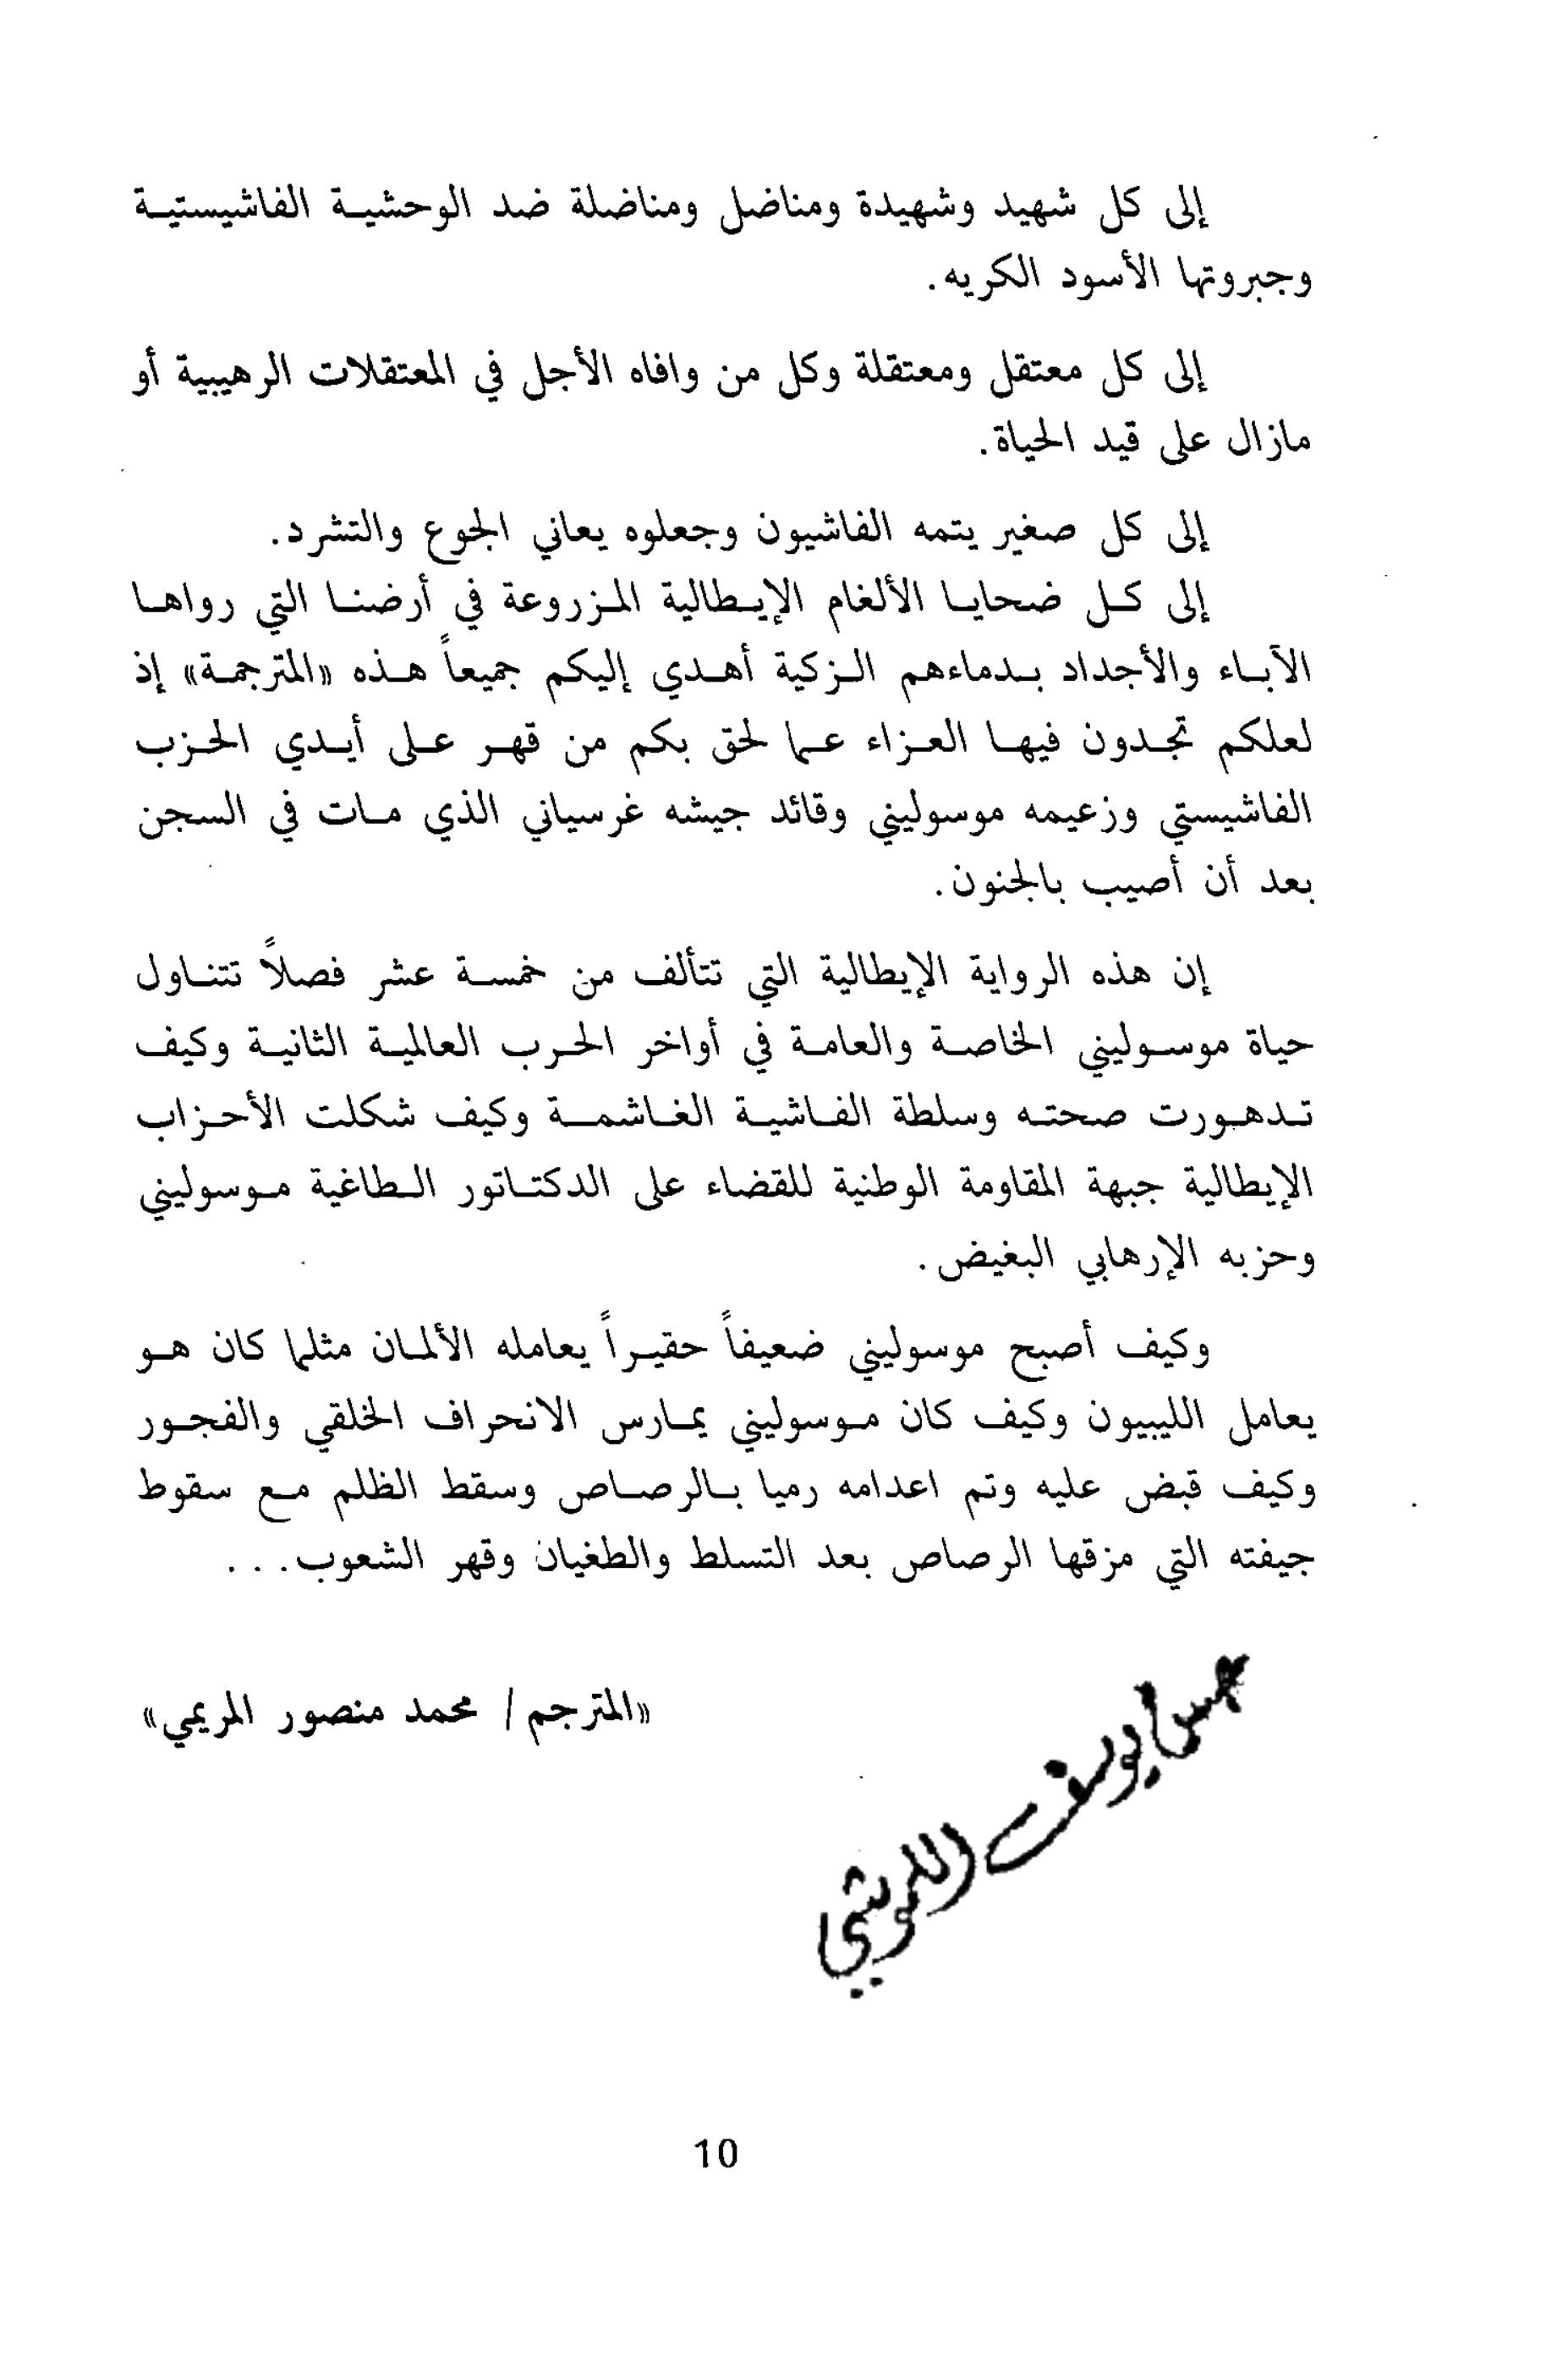 إلى كل شهيد وشهيدة ومناضل ومناضلة ضد الوحشية الفاشيستية
وجبروتها الأسود الكريه.
إلى كل معتقل ومعتقلة وكل من وافاه الأجل في المعتقلات الرهيبية أو
مازال على قيد الحياة.
إلى كل صغير يتمه الفاشيون وجعلوه يعاني الجوع والتشرد.
إلى كل ضحايا الألغام الإيطالية المزروعة في أرضنا التي رواها
الآباء والأجداد بدماءهم الزكية أهدي إليكم جميعاً هذه «المترجمة» إذ
لعلكم تجدون فيها العزاء عما لحق بكم من قهر على أيدي الحزب
الفاشيستي وزعيمه موسوليني وقائد جيشه غرسياني الذي مات في السجن
بعد أن أصيب بالجنون.
إن هذه الرواية الإيطالية التي تتألف من خمسة عشر فصلاً تتناول
حياة موسوليني الخاصة والعامة في أواخر الحرب العالمية الثانية وكيف
تدهورت صحته وسلطة الفاشية الغاشمة وكيف شكلت الأحزاب
الإيطالية جبهة المقاومة الوطنية للقضاء على الدكتاتور الطاغية موسوليني
وحزبه الإرهابي البغيض.
وكيف أصبح موسوليني ضعيفاً حقيراً يعامله الألمان مثلما كان هو
يعامل الليبيون وكيف كان موسوليني يمارس الانحراف الخلقي والفجور
وكيف قبض عليه وتم اعدامه رميا بالرصاص وسقط الظلم مع سقوط
جيفته التي مزقها الرصاص بعد التسلط والطغيان وقهر الشعوب...
«المترجم/ محمد منصور المريمي»
يوسف
10